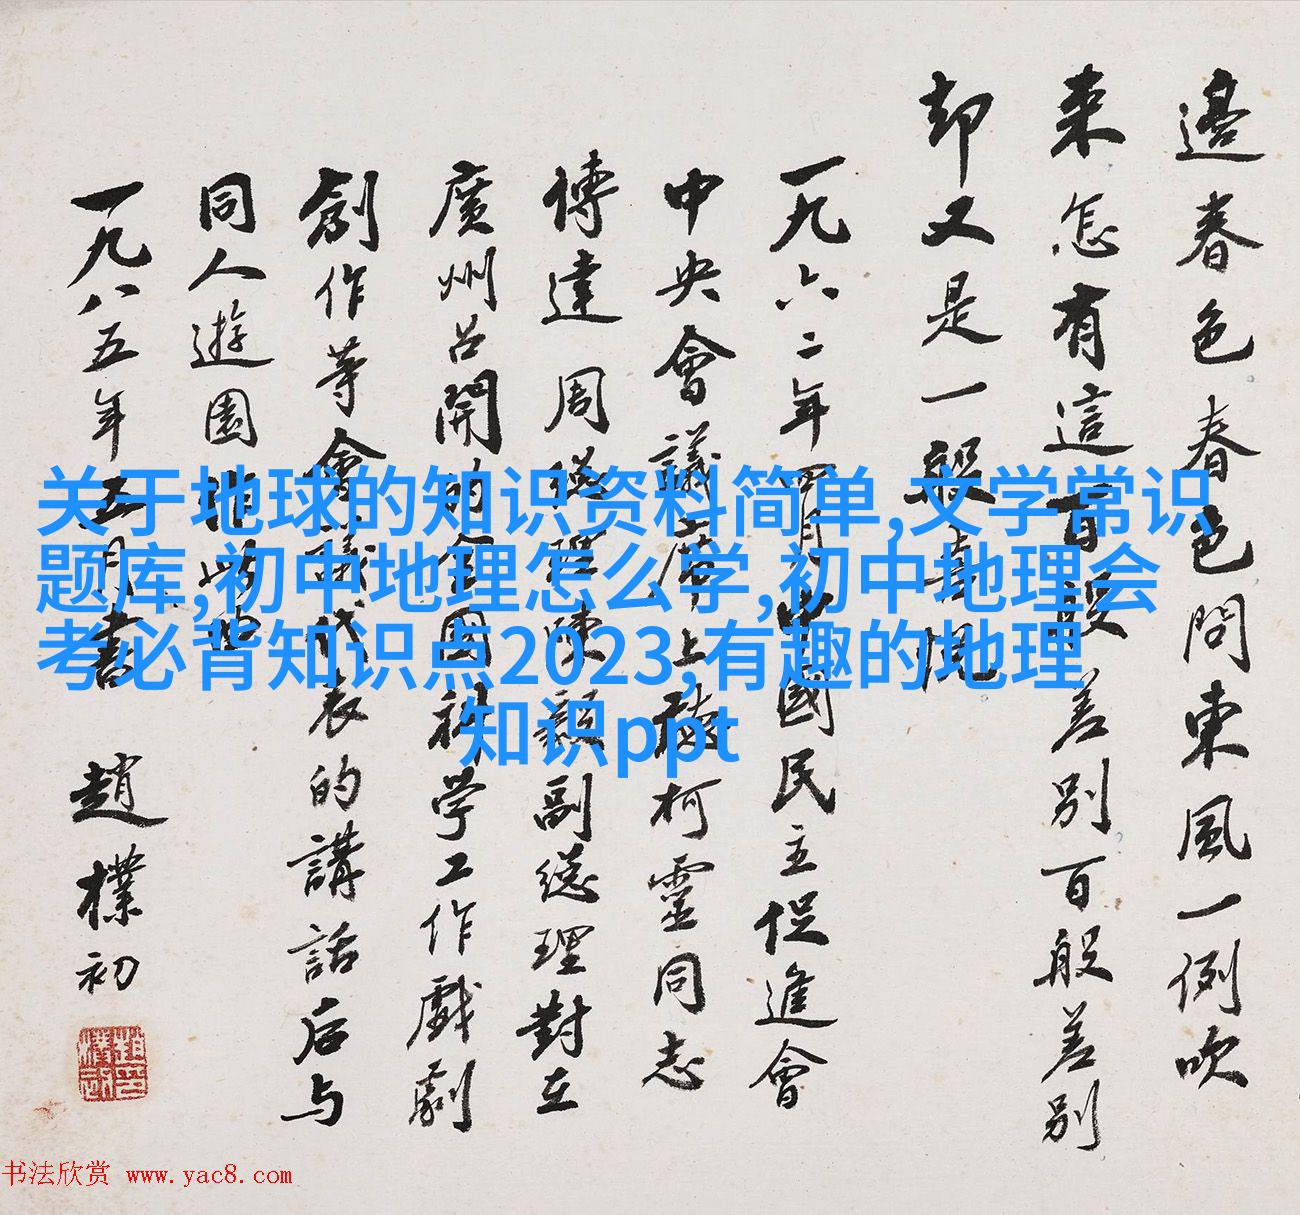 邊春色春色問東風一例吹
来怎有這百般差別百般差別
却又是一般喜悦
一九六二年四月出國民主促進會
中央會議席上聽柯靈同志
傳達周總理陳毅副總理對在
廣州召開的全國科学工作戲劇
創作等會議代表的講話后与
同人遊園
一九八五年五月書 趙樸初
关于地球的知识资料简单,文学常识
题库,初中地理怎么学,初中地理会
考必背知识点2023,有趣的地理
知识ppt
书法欣赏 www.yac8.com